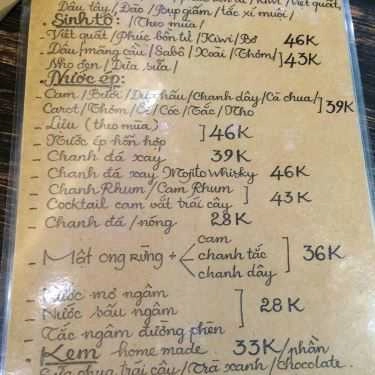 Dâu tây / Đào / Bụp giấm / tắc xí muội /
- Sinh tố: (Theo mùa)
- Việt quất / Phúc bồn tử / Kiwi / Bơ 46K
- Dâu / mãng cầu / Sabô / Xoài / Thơm / ]43K
- Nho đen / Dừa sữa /
- Nước ép:
- Cam / Bưởi / Dưa hấu / Chanh dây / Cà chua / ]39K
Carot / Thơm / Ổi / Cóc / Tắc / Nho
- Lựu (theo mùa) ]46K
- Nước ép hỗn hợp
- Chanh đá xay 39K
- Chanh đá xay Mojito Whisky 46K
- Chanh Rhum / Cam Rhum ] 43K
- Cocktail cam vắt trái cây
- Chanh đá / nóng 28K
- Mật ong rừng + cam ] 36K
chanh tắc
chanh dây
- Nước mơ ngâm ] 28K
- Nước sấu ngâm
- Tắc ngâm đường phèn
- Kem home made 33K/phần
Sữa chua trái cây / Trà xanh / chocolate